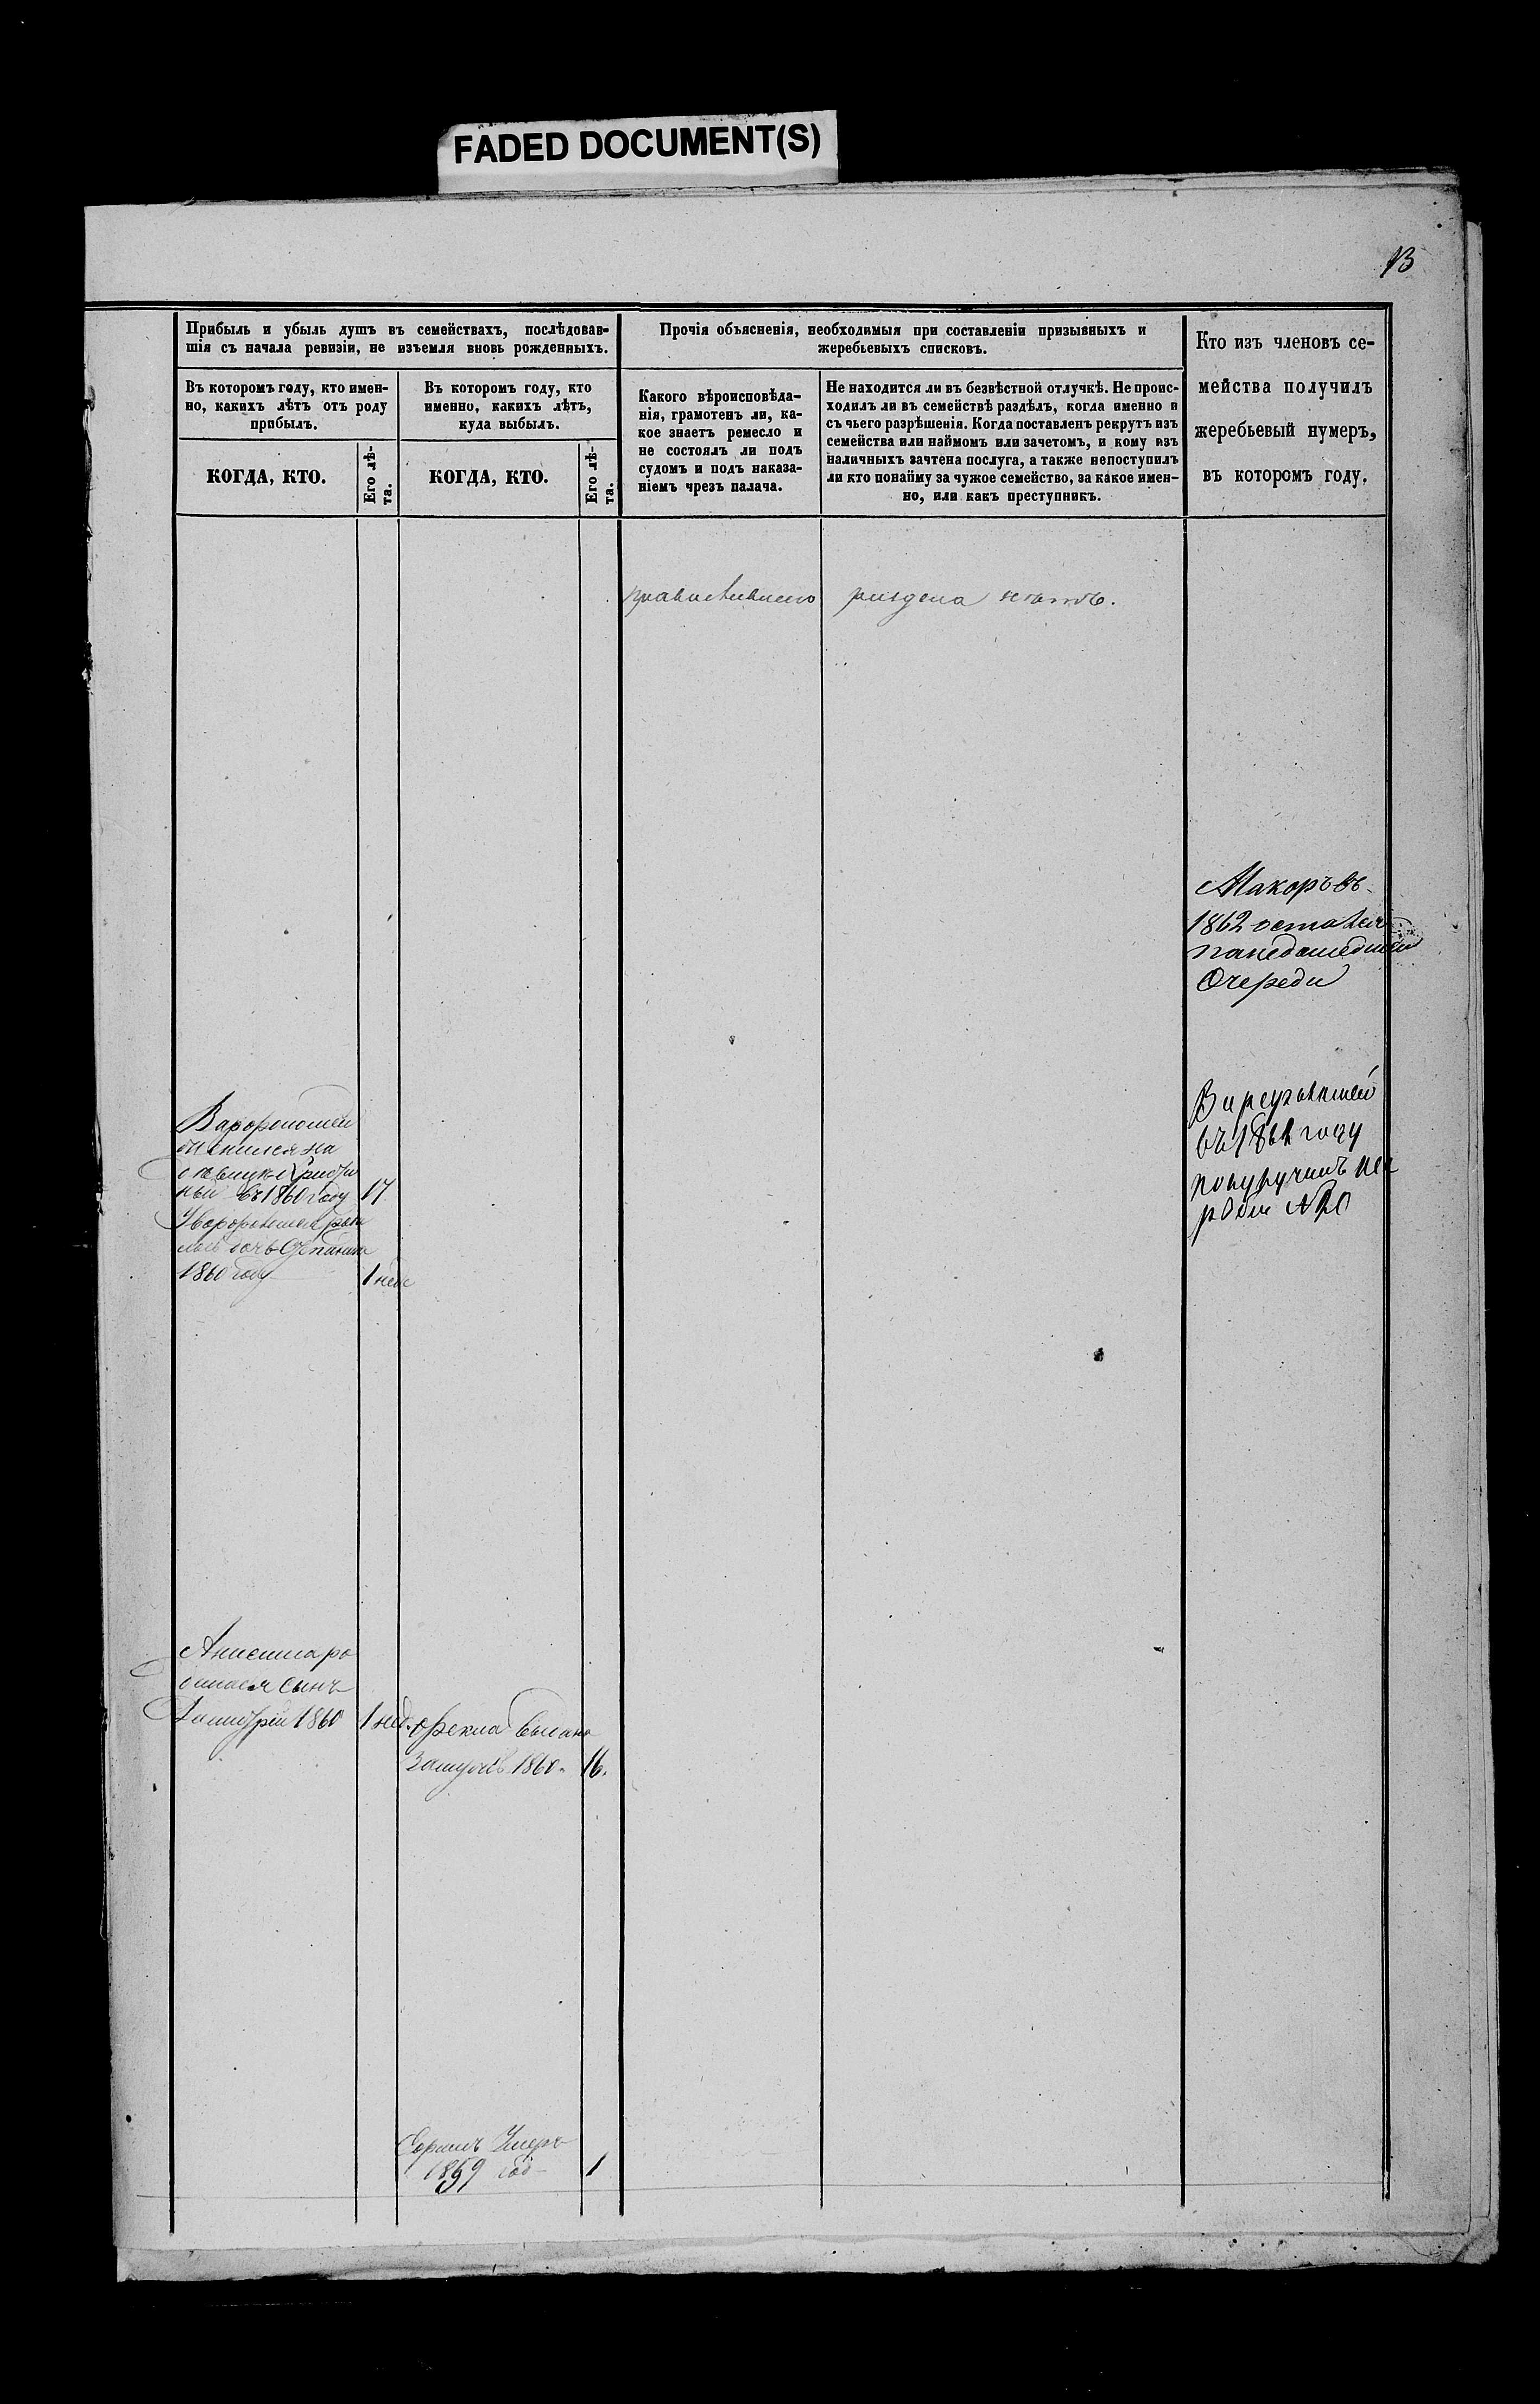 FADED DOCUMENT(S)
13
Прибыль и убыль душъ въ семействахъ, послѣдовав-
шія съ начала ревизіи, не изъемля вновь рожденныхъ.
Въ которомъ году, кто имен-
но, какихъ лѣтъ отъ роду
прибылъ.
КОГДА, КТО.
Его лѣ-
та.
Въ которомъ году, кто
именно, какихъ лѣтъ,
куда выбылъ.
КОГДА, КТО.
Его лѣ-
та.
Прочія объясненія, необходимыя при составленіи призывныхъ и
жеребьевыхъ списковъ.
Какого вѣроисповѣда-
нія, грамотенъ ли, ка-
кое знаетъ ремесло и
не состоялъ ли подъ
судомъ и подъ наказа-
ніемъ чрезъ палача.
Не находится ли въ безвѣстной отлучкѣ. Не проис-
ходилъ ли въ семействѣ раздѣлъ, когда именно и
съ чьего разрѣшенія. Когда поставленъ рекрутъ изъ
семейства или наймомъ или зачетомъ, и кому изъ
наличныхъ зачтена послуга, а также непоступилъ
ли кто понайму за чужое семейство, за какое имен-
но, или какъ преступникъ.
Кто изъ членовъ се-
мейства получилъ
жеребьевый нумеръ,
въ которомъ году.
раздела
Макоръ въ
1862 остался
понедошедшей
Очереди
въ 1861 году
№ 20
женился на
въ 1860 году 17
дочь
1860 году 1 неде
Анисима ро
дился сынъ
Дмитрій 1860 1 нед.
Фекла выдана
замужъ 1860. 16.
Умеръ
1859 год 1